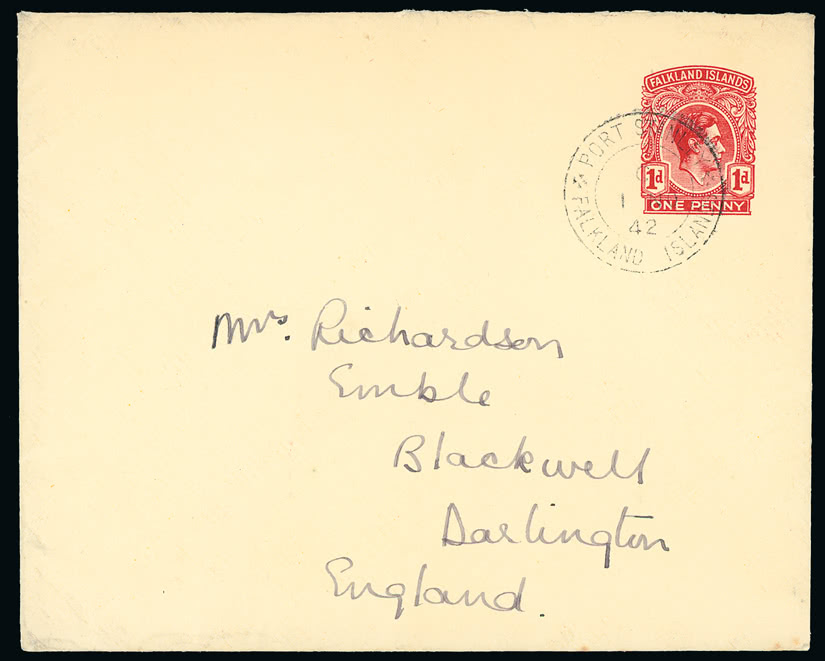 FALKLAND ISLANDS
1d 1d
ONE PENNY
PORT
1
42
FALKLAND ISLAND
Mrs. Richardson
Emble
Blackwell
Darlington
England.